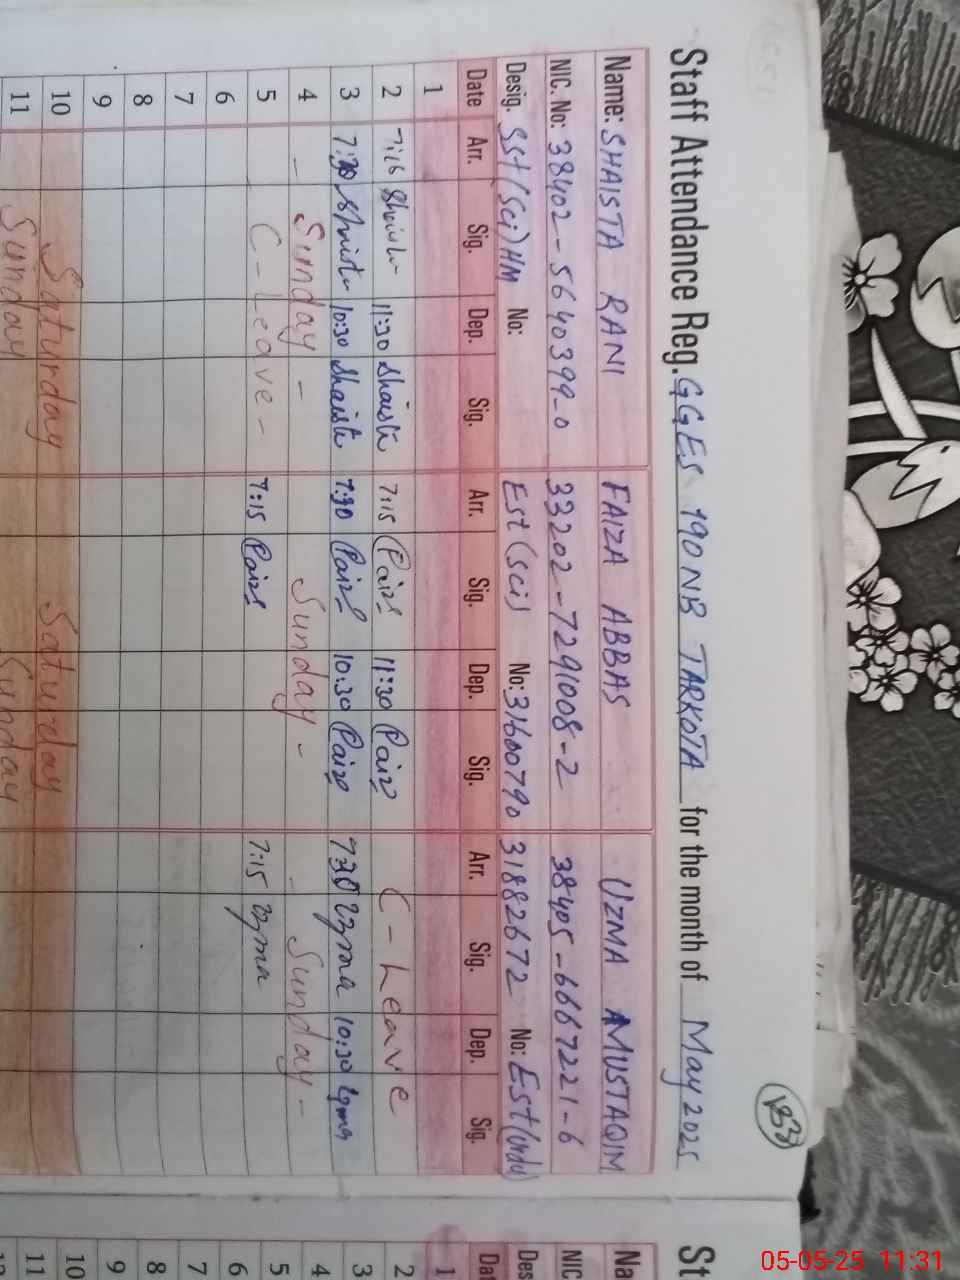 Staff Attendance Reg. GGES 190 NB TARKOTA for the month of May 2025
Name: SHAISTA RANI FAIZA ABBAS UZMA MUSTAQIM
NIC. No: 38402-5640399-0 33202-7291008-2 38405-6667221-6
Desig. SSt (Sci) HM No: Est (sci) No: 31600790 31882672 No: Est (urdu)
Date Arr. Sig. Dep. Sig. Arr. Sig. Dep. Sig. Arr. Sig. Dep. Sig.
1
2 7:16 Shaista 11:30 Shaista 7:15 Faiza 11:30 Faiza C-Leave
3 7:30 Shaista 10:30 Shaista 7:30 Faiza 10:30 Faiza 7:30 Uzma 10:30 Uzma
4 - Sunday - Sunday - - Sunday -
5 C-Leave- 7:15 Faiza 7:15 Uzma
6
7
8
9
10 Saturday Saturday
11 Sunday Sunday
1833
St
Na
NIC
Des
Dat
1
2
3
4
5
6
7
8
9
10
11
05-05-25 11:31